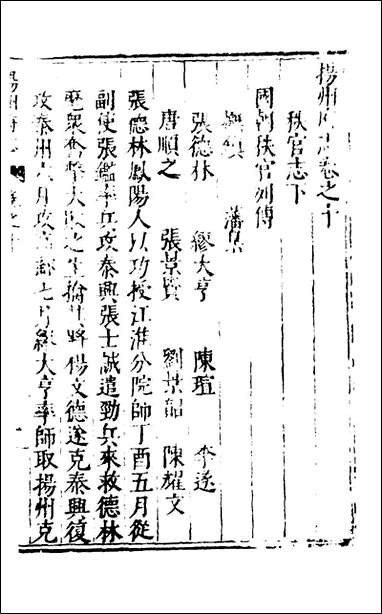 揚州府志卷之十
秩官志下
國朝秩官列傳
撫鎮 藩臬
張德林 繆大亨 陳瑄 李遂
唐順之 張景賢 劉景韶 陳耀文
張德林鳳陽人以功授江淮分院師丁酉五月從
副使張鑑率兵攻泰興張士誠遣勁兵來救德林
麾衆奮擊大敗之生擒其將楊文德遂克泰興復
攻泰州六月攻高郵七月繆大亨率師取揚州克
揚州府志